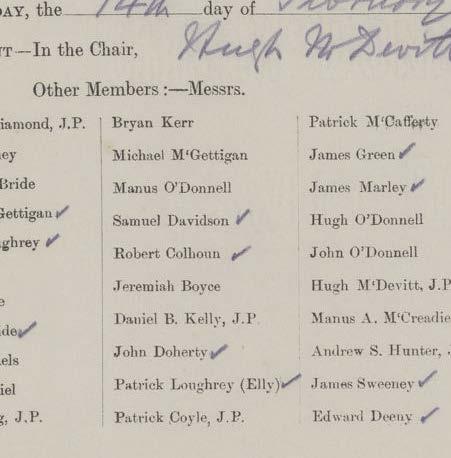 DAY, the 14th day of February
NT—In the Chair, Hugh McDevitt
Other Members :—Messrs.
iamond, J.P.
ey
Bride
Gettigan ✓
ughrey ✓
e
ide ✓
els
iel
g, J.P.
Bryan Kerr
Michael M'Gettigan
Manus O'Donnell
Samuel Davidson ✓
Robert Colhoun ✓
Jeremiah Boyce
Daniel B. Kelly, J.P.
John Doherty ✓
Patrick Loughrey (Elly) ✓
Patrick Coyle, J.P.
Patrick M'Cafferty
James Green ✓
James Marley ✓
Hugh O'Donnell
John O'Donnell
Hugh M'Devitt, J.P
Manus A. M'Creadie
Andrew S. Hunter, J
James Sweeney ✓
Edward Deeny ✓